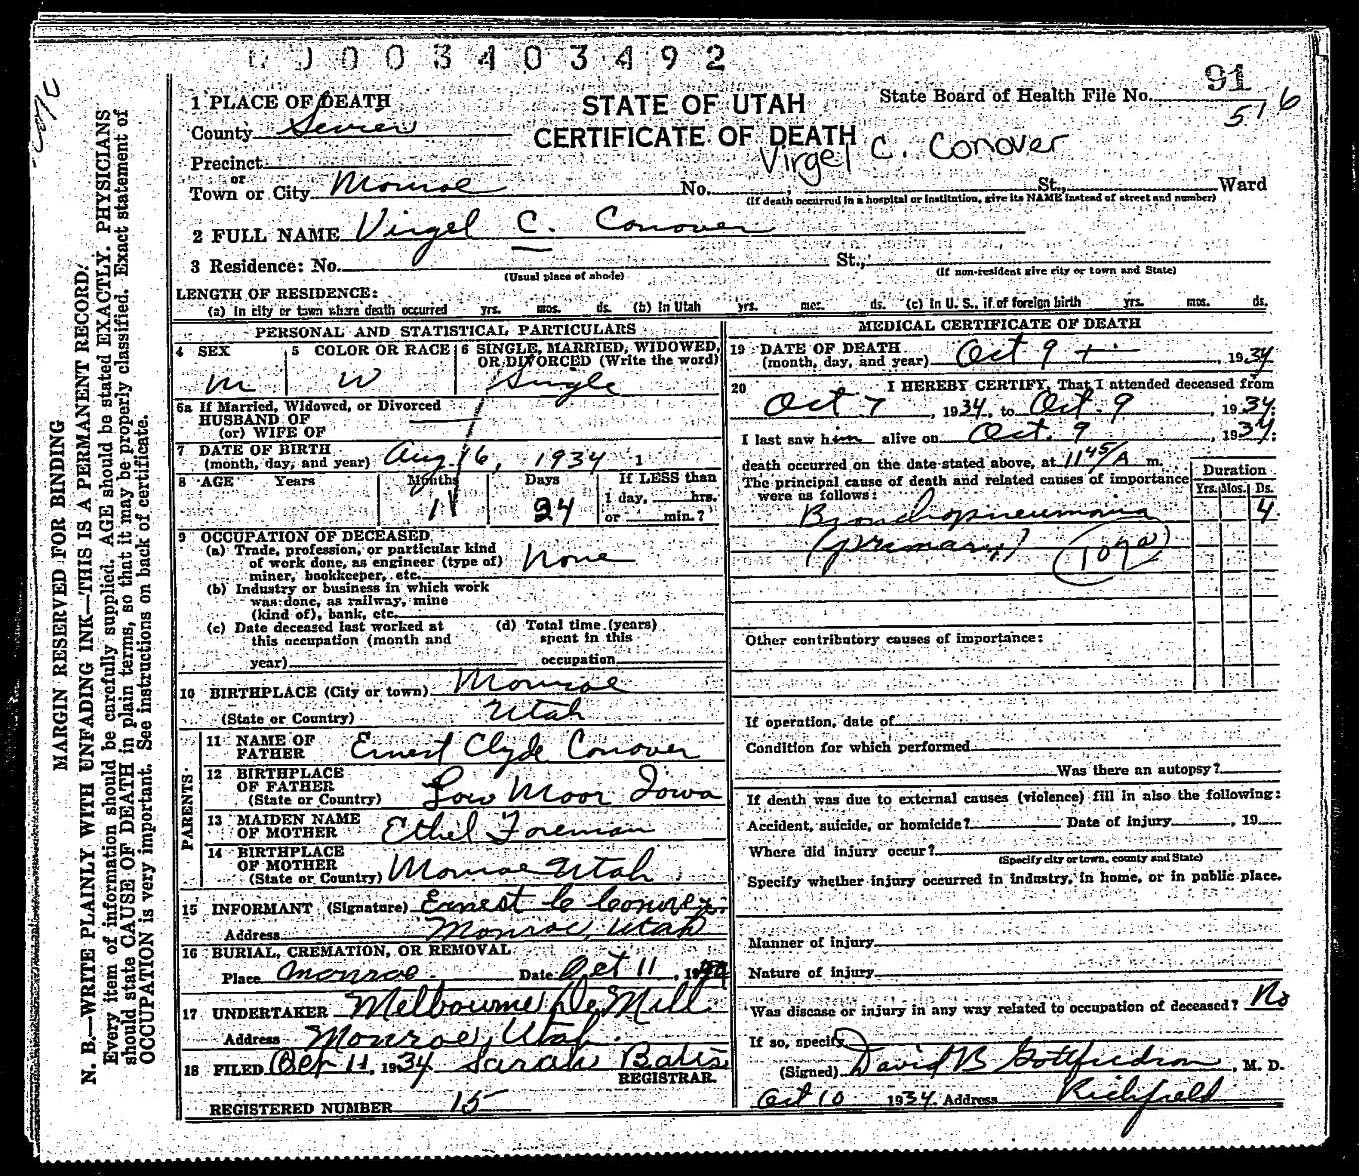 0 0 0 0 3 4 0 3 4 9 2
91
516
1 PLACE OF DEATH
STATE OF UTAH
State Board of Health File No.
County Sevier
CERTIFICATE OF DEATH
Virgel C. Conover
Precinct
or
Town or City Monroe No. St., Ward
(If death occurred in a hospital or institution, give its NAME instead of street and number)
2 FULL NAME Virgel C. Conover
3 Residence: No. St.,
(Usual place of abode) (If non-resident give city or town and State)
LENGTH OF RESIDENCE:
(a) In city or town where death occurred yrs. mos. ds. (b) In Utah yrs. mos. ds. (c) In U. S., if of foreign birth yrs. mos. ds.
PERSONAL AND STATISTICAL PARTICULARS
4 SEX M
5 COLOR OR RACE W
6 SINGLE, MARRIED, WIDOWED, OR DIVORCED (Write the word) Single
6a If Married, Widowed, or Divorced
HUSBAND OF
(or) WIFE OF
7 DATE OF BIRTH
(month, day, and year) Aug. 16, 1934
8 AGE Years Months Days If LESS than
1 24 1 day, hrs.
or min.?
9 OCCUPATION OF DECEASED
(a) Trade, profession, or particular kind
of work done, as engineer (type of)
miner, bookkeeper, etc. None
(b) Industry or business in which work
was done, as railway, mine
(kind of), bank, etc.
(c) Date deceased last worked at
this occupation (month and
year)
(d) Total time (years)
spent in this
occupation
10 BIRTHPLACE (City or town) Monroe
(State or Country) Utah
PARENTS
11 NAME OF
FATHER Ernest Clyde Conover
12 BIRTHPLACE
OF FATHER
(State or Country) Low Moor Iowa
13 MAIDEN NAME
OF MOTHER Ethel Foreman
14 BIRTHPLACE
OF MOTHER
(State or Country) Monroe Utah
15 INFORMANT (Signature) Ernest C Conover
Address Monroe, Utah
16 BURIAL, CREMATION, OR REMOVAL
Place Monroe. Date Oct 11, 1934
17 UNDERTAKER Melbourne De Mill
Address Monroe, Utah.
18 FILED Oct 11, 1934 Sarah Bates
REGISTRAR.
REGISTERED NUMBER 15
MEDICAL CERTIFICATE OF DEATH
19 DATE OF DEATH
(month, day, and year) Oct 9, 1934
20 I HEREBY CERTIFY, That I attended deceased from
Oct 7, 1934, to Oct. 9, 1934.
I last saw him alive on Oct. 9, 1934;
death occurred on the date stated above, at 11 45/A m.
The principal cause of death and related causes of importance
were as follows:
Duration
Yrs. Mos. Ds.
Bronchopneumonia 4
(primary) (107a)
Other contributory causes of importance:
If operation, date of
Condition for which performed
Was there an autopsy?
If death was due to external causes (violence) fill in also the following:
Accident, suicide, or homicide? Date of injury, 19
Where did injury occur?
(Specify city or town, county and State)
Specify whether injury occurred in industry, in home, or in public place.
Manner of injury
Nature of injury
Was disease or injury in any way related to occupation of deceased? No
If so, specify
(Signed) David B Gottfredson, M. D.
Oct 10 1934 Address Richfield
MARGIN RESERVED FOR BINDING
N. B.—WRITE PLAINLY WITH UNFADING INK—THIS IS A PERMANENT RECORD.
Every item of information should be carefully supplied. AGE should be stated EXACTLY. PHYSICIANS
should state CAUSE OF DEATH in plain terms, so that it may be properly classified. Exact statement of
OCCUPATION is very important. See instructions on back of certificate.